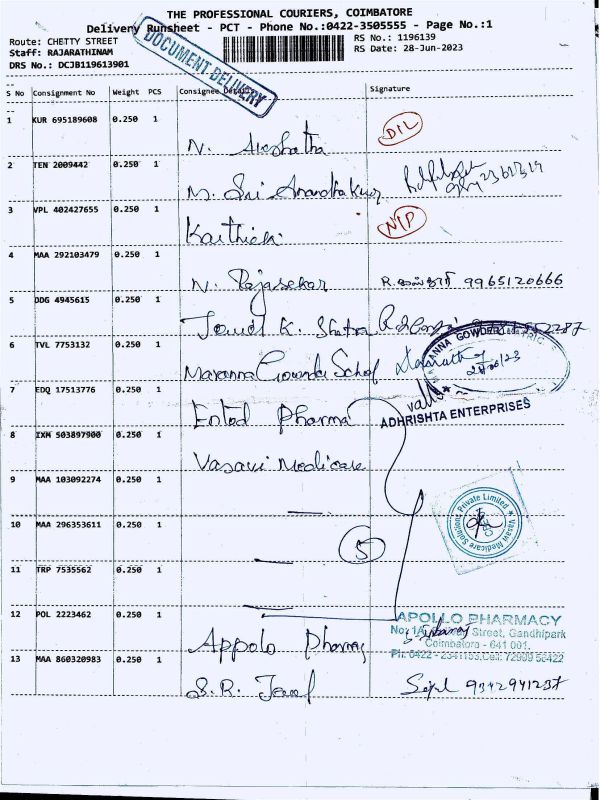 THE PROFESSIONAL COURIERS, COIMBATORE
Delivery Runsheet - PCT - Phone No.:0422-3505555 - Page No.:1
Route: CHETTY STREET
RS No.: 1196139
Staff: RAJARATHINAM
RS Date: 28-Jun-2023
DRS No.: DCJB119613901
DOCUMENT DELIVERY
S No Consignment No Weight PCS Consignee Details Signature
1 KUR 695189608 0.250 1
N. Akshatha
2 TEN 2009442 0.250 1
M. Sri Anandha kumar
3 VPL 402427655 0.250 1
Karthick
NIP
4 MAA 292103479 0.250 1
N. Rajasekar 9965120666
5 DDG 4945615 0.250 1
6 TVL 7753132 0.250 1
Maranna Gowder School
7 EDQ 17513776 0.250 1
Entod Pharma
ADHRISHTA ENTERPRISES
8 IXM 503897900 0.250 1
Vasavi Medicare
9 MAA 103092274 0.250 1
Vasavi Medicare Solutions Private Limited
10 MAA 296353611 0.250 1
5
11 TRP 7535562 0.250 1
12 POL 2223462 0.250 1
Appolo Pharmacy
APOLLO PHARMACY
Street, Gandhipark
Coimbatore - 641 001.
13 MAA 860320983 0.250 1
S.R. 9342941237